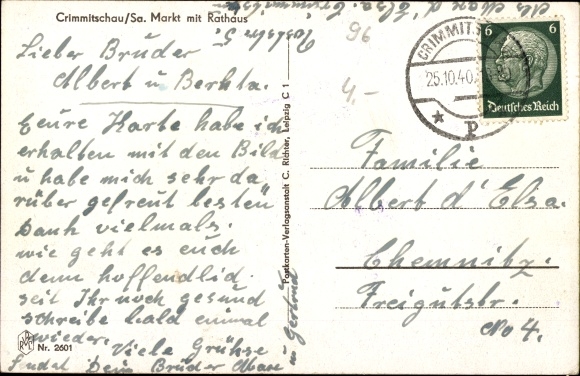 Crimmitschau/Sa. Markt mit Rathaus
Lieber Bruder
Albert u Berhta.
Eeure Karte habe ich
erhalten mit den Bild
u habe mich sehr da
rüber gefreut besten
Dank vielmals.
wie geht es euch
denn hoffendlid.
seit Ihr noch gesund
schreibe bald einmal
wieder.
Viele Grühse
sendet Dein Bruder Max
u Gertrud
Nr. 2601
Postkarten-Verlagsanstalt C. Richter, Leipzig C 1
96
4,-
CRIMMITS
25.10.40.
* p
6 6
Deutsches Reich
Familie
Albert d' Elsa.
Chemnitz.
Freigutstr.
No 4.